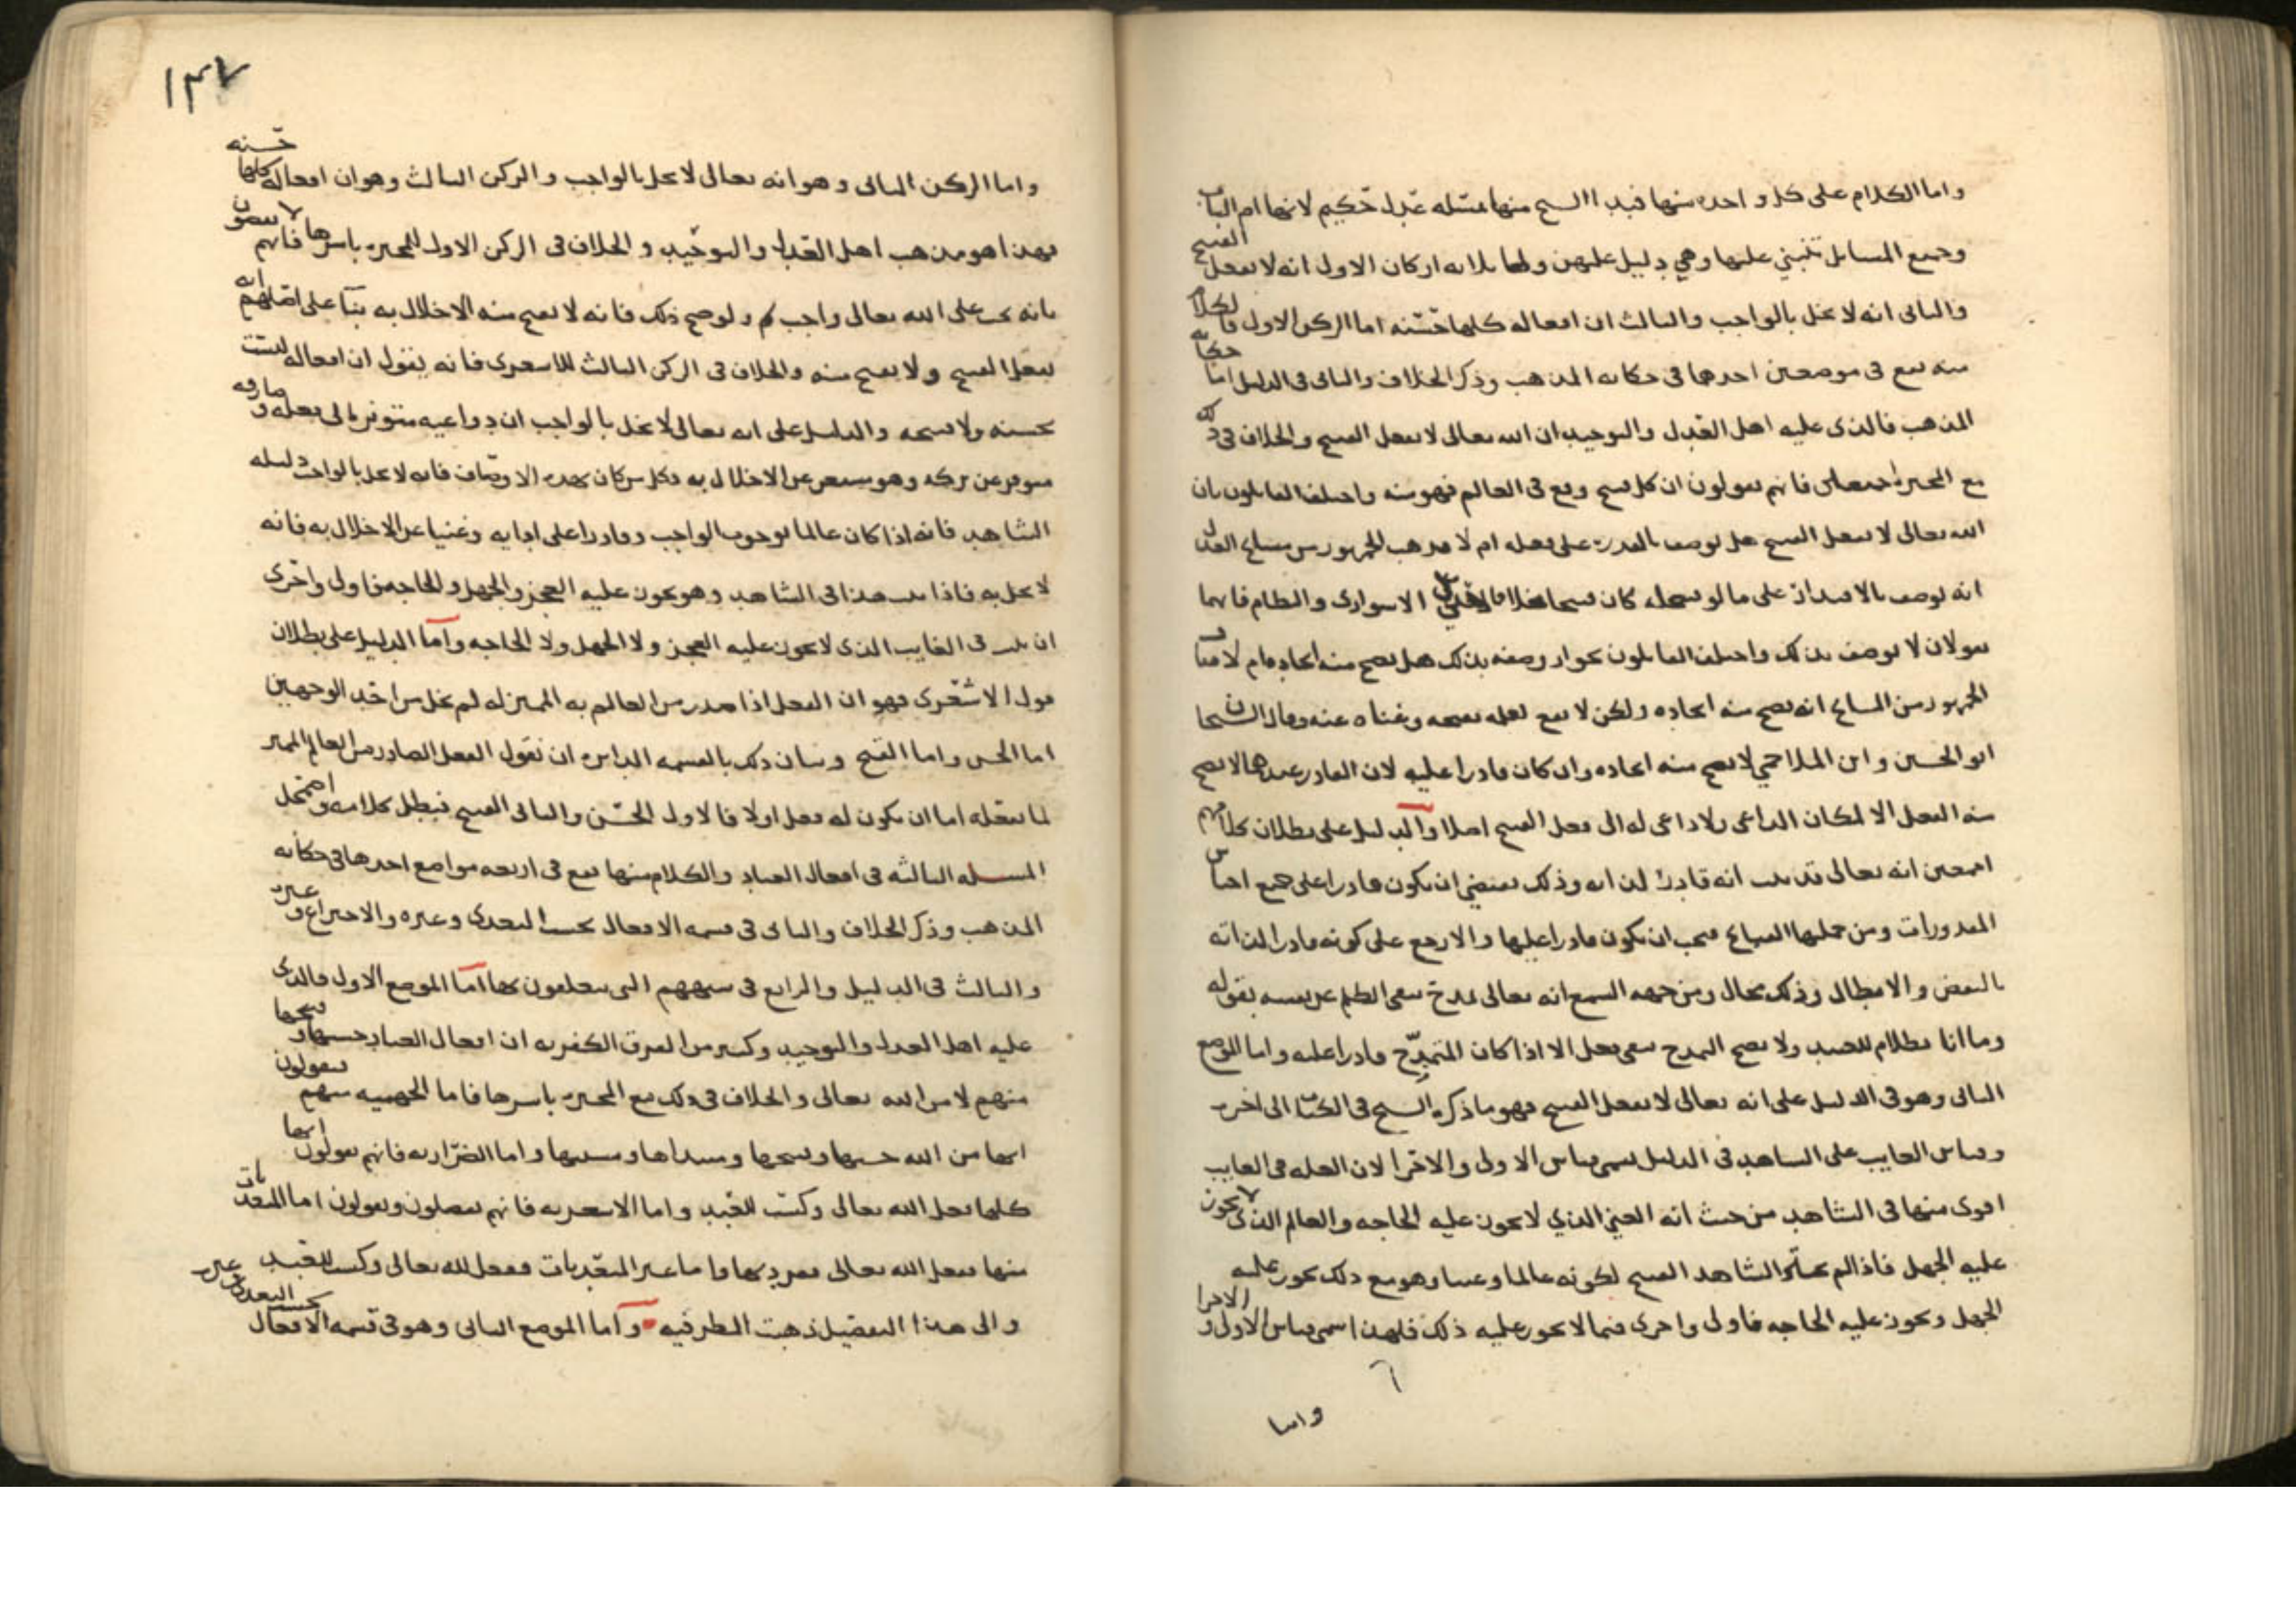 واما الكلام على كل واحده منها فبدا الشيخ منها بمسئله عدل حكيم لانها ام الباب
وجميع المسايل تنبني عليها وهي دليل عليهن ولها ثلاثه اركان الاول انه لا يفعل القبيح
والثاني انه لا يخل بالواجب والثالث ان افعاله كلها حسنه اما الركن الاول فالكلام
منه يقع في موضعين احدهما في حكايه المذهب وذكر الخلاف والثاني في الدليل اما حكايه
المذهب فالذي عليه اهل العدل والتوحيد ان الله تعالى لا يفعل القبيح والخلاف في ذلك
مع المجبره اجمعين فانهم يقولون ان كل قبيح وقع في العالم فهو منه واختلف القايلون بان
الله تعالى لا يفعل القبيح هل يوصف بالقدره على فعله ام لا فذهب الجمهور من مشايخ العدل
انه يوصف بالاقتدار على ما لو فعله كان قبيحا خلافا الاسواري والنظام فانهما
يقولان لا يوصف بذلك واختلف القايلون بجواز وصفه بذلك هل يصح منه ايجاده ام لا فقال
الجمهور من المشايخ انه يصح منه ايجاده ولكن لا يقع لعلمه بقبحه وغناه عنه وقال الشيخان
ابو الحسين وابن الملاحمي لا يصح منه ايجاده وان كان قادرا عليه لان القادر عندهما لا يصح
منه الفعل الا لمكان الداعي ولا داعي له الى فعل القبيح اصلا والدليل على بطلان كلامهم
اجمعين انه تعالى قد ثبت انه قادر لذاته وذلك يقتضي ان يكون قادرا على جميع اجناس
المقدورات ومن جملتها القبايح فيجب ان يكون قادرا عليها والا رجع على كونه قادرا لذاته
بالنقض والابطال وذلك محال ومن جهه السمع انه تعالى تمدح بنفي الظلم عن نفسه بقوله
وما انا بظلام للعبيد ولا يصح التمدح بنفي فعل الا اذا كان المتمدح قادرا عليه واما الموضع
الثاني وهو في الدليل على انه تعالى لا يفعل القبيح فهو ما ذكره الشيخ في الكتاب الى اخره
وقياس الغايب على الشاهد في الدليل يسمى قياس الاولى والاحرا لان العله في الغايب
اقوى منها في الشاهد من حيث انه الغني الذي لا يجوز عليه الحاجه والعالم الذي لا يجوز
عليه الجهل فاذا لم يختر الشاهد القبيح لكونه عالما وغنيا وهو مع ذلك يجوز عليه
الجهل ويجوز عليه الحاجه فاولى واحرى فيما لا يجوز عليه ذلك فلهذا سمي قياس الاولى والاحرا
واما
١٣٧
واما الركن الثاني وهو انه تعالى لا يخل بالواجب والركن الثالث وهو ان افعاله كلها حسنه
فهذا هو مذهب اهل العدل والتوحيد والخلاف في الركن الاول للمجبره باسرها فانهم لا يقضون
بانه يجب على الله تعالى واجب ولو صح ذلك فانه لا يقبح منه الاخلال به بناء على اصلهم انه
يفعل القبيح ولا يقبح منه والخلاف في الركن الثالث للاشعري فانه يقول ان افعاله ليست
بحسنه ولا قبيحه والدليل على انه تعالى لا يخل بالواجب ان دواعيه متوفره الى فعله وصارفه
متوفر عن تركه وهو مستغن عن الاخلال به وكل من كان بهذه الاوصاف فانه لا يخل بالواجب دليله
الشاهد فانه اذا كان عالما بوجوب الواجب وقادرا على ادايه وغنيا عن الاخلال به فانه
لا يخل به فاذا ثبت هذا في الشاهد وهو يجوز عليه العجز والجهل والحاجه فاولى واحرى
ان يثبت في الغايب الذي لا يجوز عليه العجز ولا الجهل ولا الحاجه واما الدليل على بطلان
قول الاشعري فهو ان الفعل اذا صدر من العالم به المميز له لم يخل من احد الوجهين
اما الحسن واما القبح وبيان ذلك بالقسمه الدايره ان نقول الفعل الصادر من العالم المميز
لما يفعله اما ان يكون له فعله اولا فالاول الحسن والثاني القبيح فبطل كلامه واضمحل
المسئله الثالثه في افعال العباد والكلام منها يقع في اربعه مواضع احدها في حكايه
المذهب وذكر الخلاف والثاني في قسمه الافعال بحسب التعدي وغيره والاختراع وغيره
والثالث في الدليل والرابع في شبههم التي يتعلقون بها اما الموضع الاول فالذي
عليه اهل العدل والتوحيد وكثير من الفرق الكفريه ان افعال العباد حسنها وقبيحها
منهم لا من الله تعالى والخلاف في ذلك مع المجبره باسرها فاما الجهميه منهم فيقولون
انها من الله حسنها وقبيحها ومبتداها ومسببها واما الضراريه فانهم يقولون انها
كلها فعل الله تعالى وكسب للعبد واما الاشعريه فانهم يفصلون ويقولون اما المتعديات
منها ففعل الله تعالى تفرد بها واما غير المتعديات ففعل لله تعالى وكسب للعبد
والى هذا التفصيل ذهبت المطرفيه واما الموضع الثاني وهو في قسمه الافعال بحسب التعدي وغيره